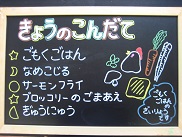 きょうのこんだて
☆ごもくごはん
☽なめこじる
○サーモンフライ
☆ブロッコリーのごまあえ
△ぎゅうにゅう
ごもくごはん
の
ざいりょうです